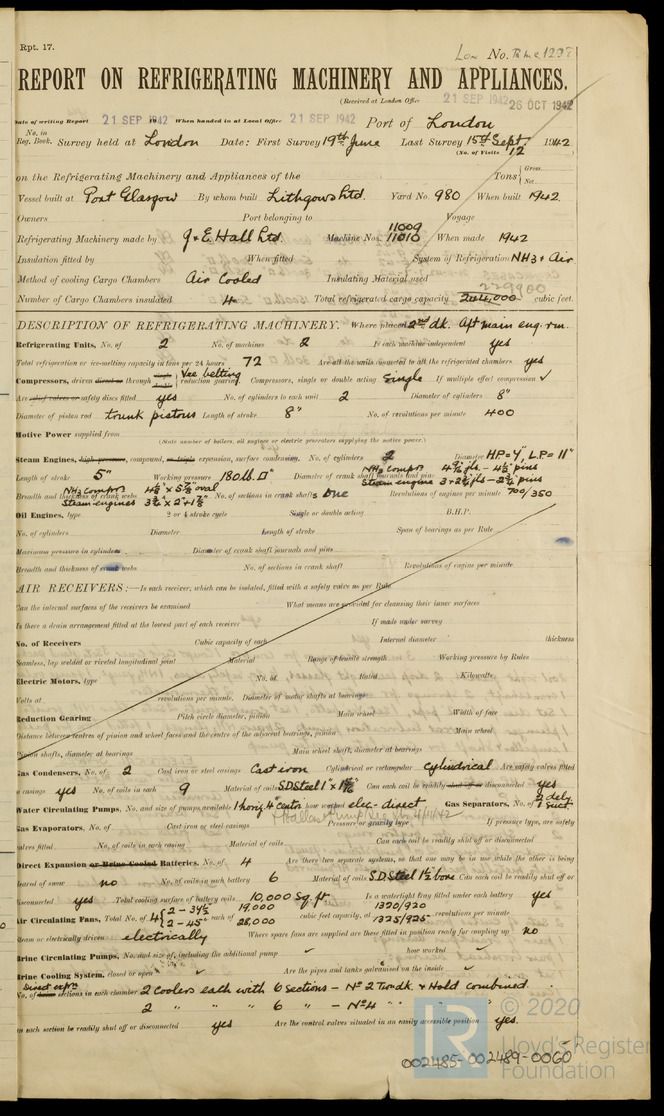 Rpt. 17.
No.
REPORT ON REFRIGERATING MACHINERY AND APPLIANCES.
(Received at London Office 21 SEP 1942 26 OCT 1942
Date of writing Report 21 SEP 1942 When handed in at Local Office 21 SEP 1942 Port of London
No. in Reg. Book. Survey held at London Date: First Survey 19th June Last Survey 15th Sept. 1942
(No. of Visits 12 )
on the Refrigerating Machinery and Appliances of the Tons { Gross Net
Vessel built at Port Glasgow By whom built Lithgows Ltd. Yard No. 980 When built 1942.
Owners Port belonging to Voyage
Refrigerating Machinery made by J & E. Hall Ltd. Machine Nos. 11009 11010 When made 1942
Insulation fitted by When fitted System of Refrigeration NH3 & Air
Method of cooling Cargo Chambers Air Cooled Insulating Material used
229900
Number of Cargo Chambers insulated 4 Total refrigerated cargo capacity 244,000 cubic feet.
DESCRIPTION OF REFRIGERATING MACHINERY. Where placed 2nd dk. Aft main eng. rm.
Refrigerating Units, No. of 2 No. of machines 2 Is each machine independent yes
Total refrigeration or ice-melting capacity in tons per 24 hours 72 Are all the units connected to all the refrigerated chambers yes
Compressors, driven direct or through Vee belting reduction gearing. Compressors, single or double acting Single If multiple effect compression ✓
Are relief valves or safety discs fitted yes No. of cylinders to each unit 2 Diameter of cylinders 8"
Diameter of piston rod trunk pistons Length of stroke 8" No. of revolutions per minute 400
Motive Power supplied from
(State number of boilers, oil engines or electric generators supplying the motive power.)
Steam Engines, high pressure, compound, or triple expansion, surface condensing. No. of cylinders 2 Diameter HP = 7", L.P. = 11"
Length of stroke 5" Working pressure 180 lb. □" Diameter of crank shaft journals and pins
Breadth and thickness of crank webs NH3 compors 4⅛" x 5⅞" oval No. of sections in crank shafts One Revolutions of engines per minute 700/350
Oil Engines, type 2 or 4 stroke cycle Single or double acting B.H.P.
No. of cylinders Diameter Length of stroke Span of bearings as per Rule
Maximum pressure in cylinders Diameter of crank shaft journals and pins
Breadth and thickness of crank webs No. of sections in crank shaft Revolutions of engine per minute
AIR RECEIVERS:—Is each receiver, which can be isolated, fitted with a safety valve as per Rule
Can the internal surfaces of the receivers be examined What means are provided for cleansing their inner surfaces
Is there a drain arrangement fitted at the lowest part of each receiver If made under survey
No. of Receivers Cubic capacity of each Internal diameter thickness
Seamless, lap welded or riveted longitudinal joint Material Range of tensile strength Working pressure by Rules
Electric Motors, type No. of Rated Kilowatts
Volts at revolutions per minute, Diameter of motor shafts at bearings
Reduction Gearing Pitch circle diameter, pinion Main wheel Width of face
Distance between centres of pinion and wheel faces and the centre of the adjacent bearings, pinion Main wheel
Pinion shafts, diameter at bearings Main wheel shaft, diameter at bearings
Gas Condensers, No. of 2 Cast iron or steel casings Cast iron Cylindrical or rectangular Cylindrical Are safety valves fitted
to casings yes No. of coils in each 9 Material of coils S.D Steel 1" x 1⅝" Can each coil be readily shut off or disconnected yes
Water Circulating Pumps, No. and size of pumps available 1 horiz. 4" centr. how worked elec - direct Gas Separators, No. of 2 dely. 1 suct.
Gas Evaporators, No. of Cast iron or steel casings Pressure or gravity type If pressure type, are safety
valves fitted No. of coils in each casing Material of coils Can each coil be readily shut off or disconnected
Direct Expansion or Brine Cooled Batteries, No. of 4 Are there two separate systems, so that one may be in use while the other is being
cleared of snow no No. of coils in each battery 6 Material of coils S.D Steel 1½ bore Can each coil be readily shut off or
disconnected yes Total cooling surface of battery coils 10,000 Sq. ft Is a watertight tray fitted under each battery yes
Air Circulating Fans, Total No. of 4 { 2 - 34½ 2 - 45" each of 19,000 28,000 cubic feet capacity, at 1370/920 1325/925 revolutions per minute
Steam or electrically driven electrically Where spare fans are supplied are these fitted in position ready for coupling up no
Brine Circulating Pumps, No. and size of, including the additional pump ✓ how worked ✓
Brine Cooling System, closed or open ✓ Are the pipes and tanks galvanised on the inside ✓
No. of brine Direct expn sections in each chamber 2 Coolers each with 6 Sections - No 2 Tn dk. & Hold combined.
2 " " " 6 " - No 4 " " " "
Can each section be readily shut off or disconnected yes Are the control valves situated in an easily accessible position yes.
© 2020
Lloyd's Register
Foundation
002485-002489-0060